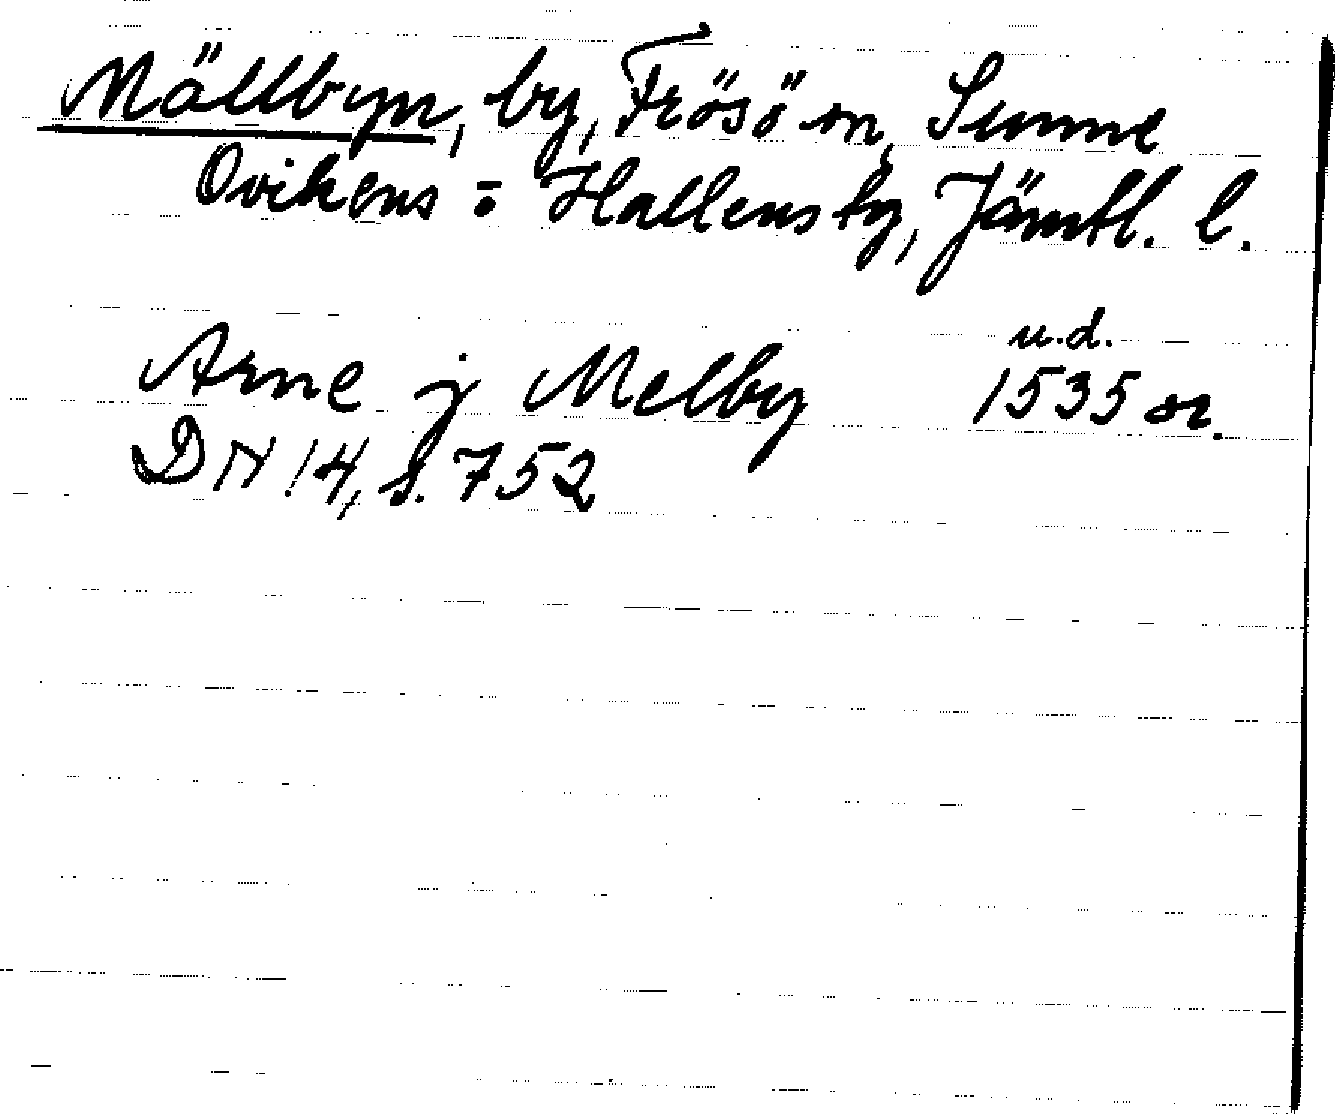 Mällbyn, by, Frösö sn, Sunne
Ovikens = Hallens tg, Jämtl. l.
u.d.
Arne j Melby 1535 or.
DN 14, s. 752